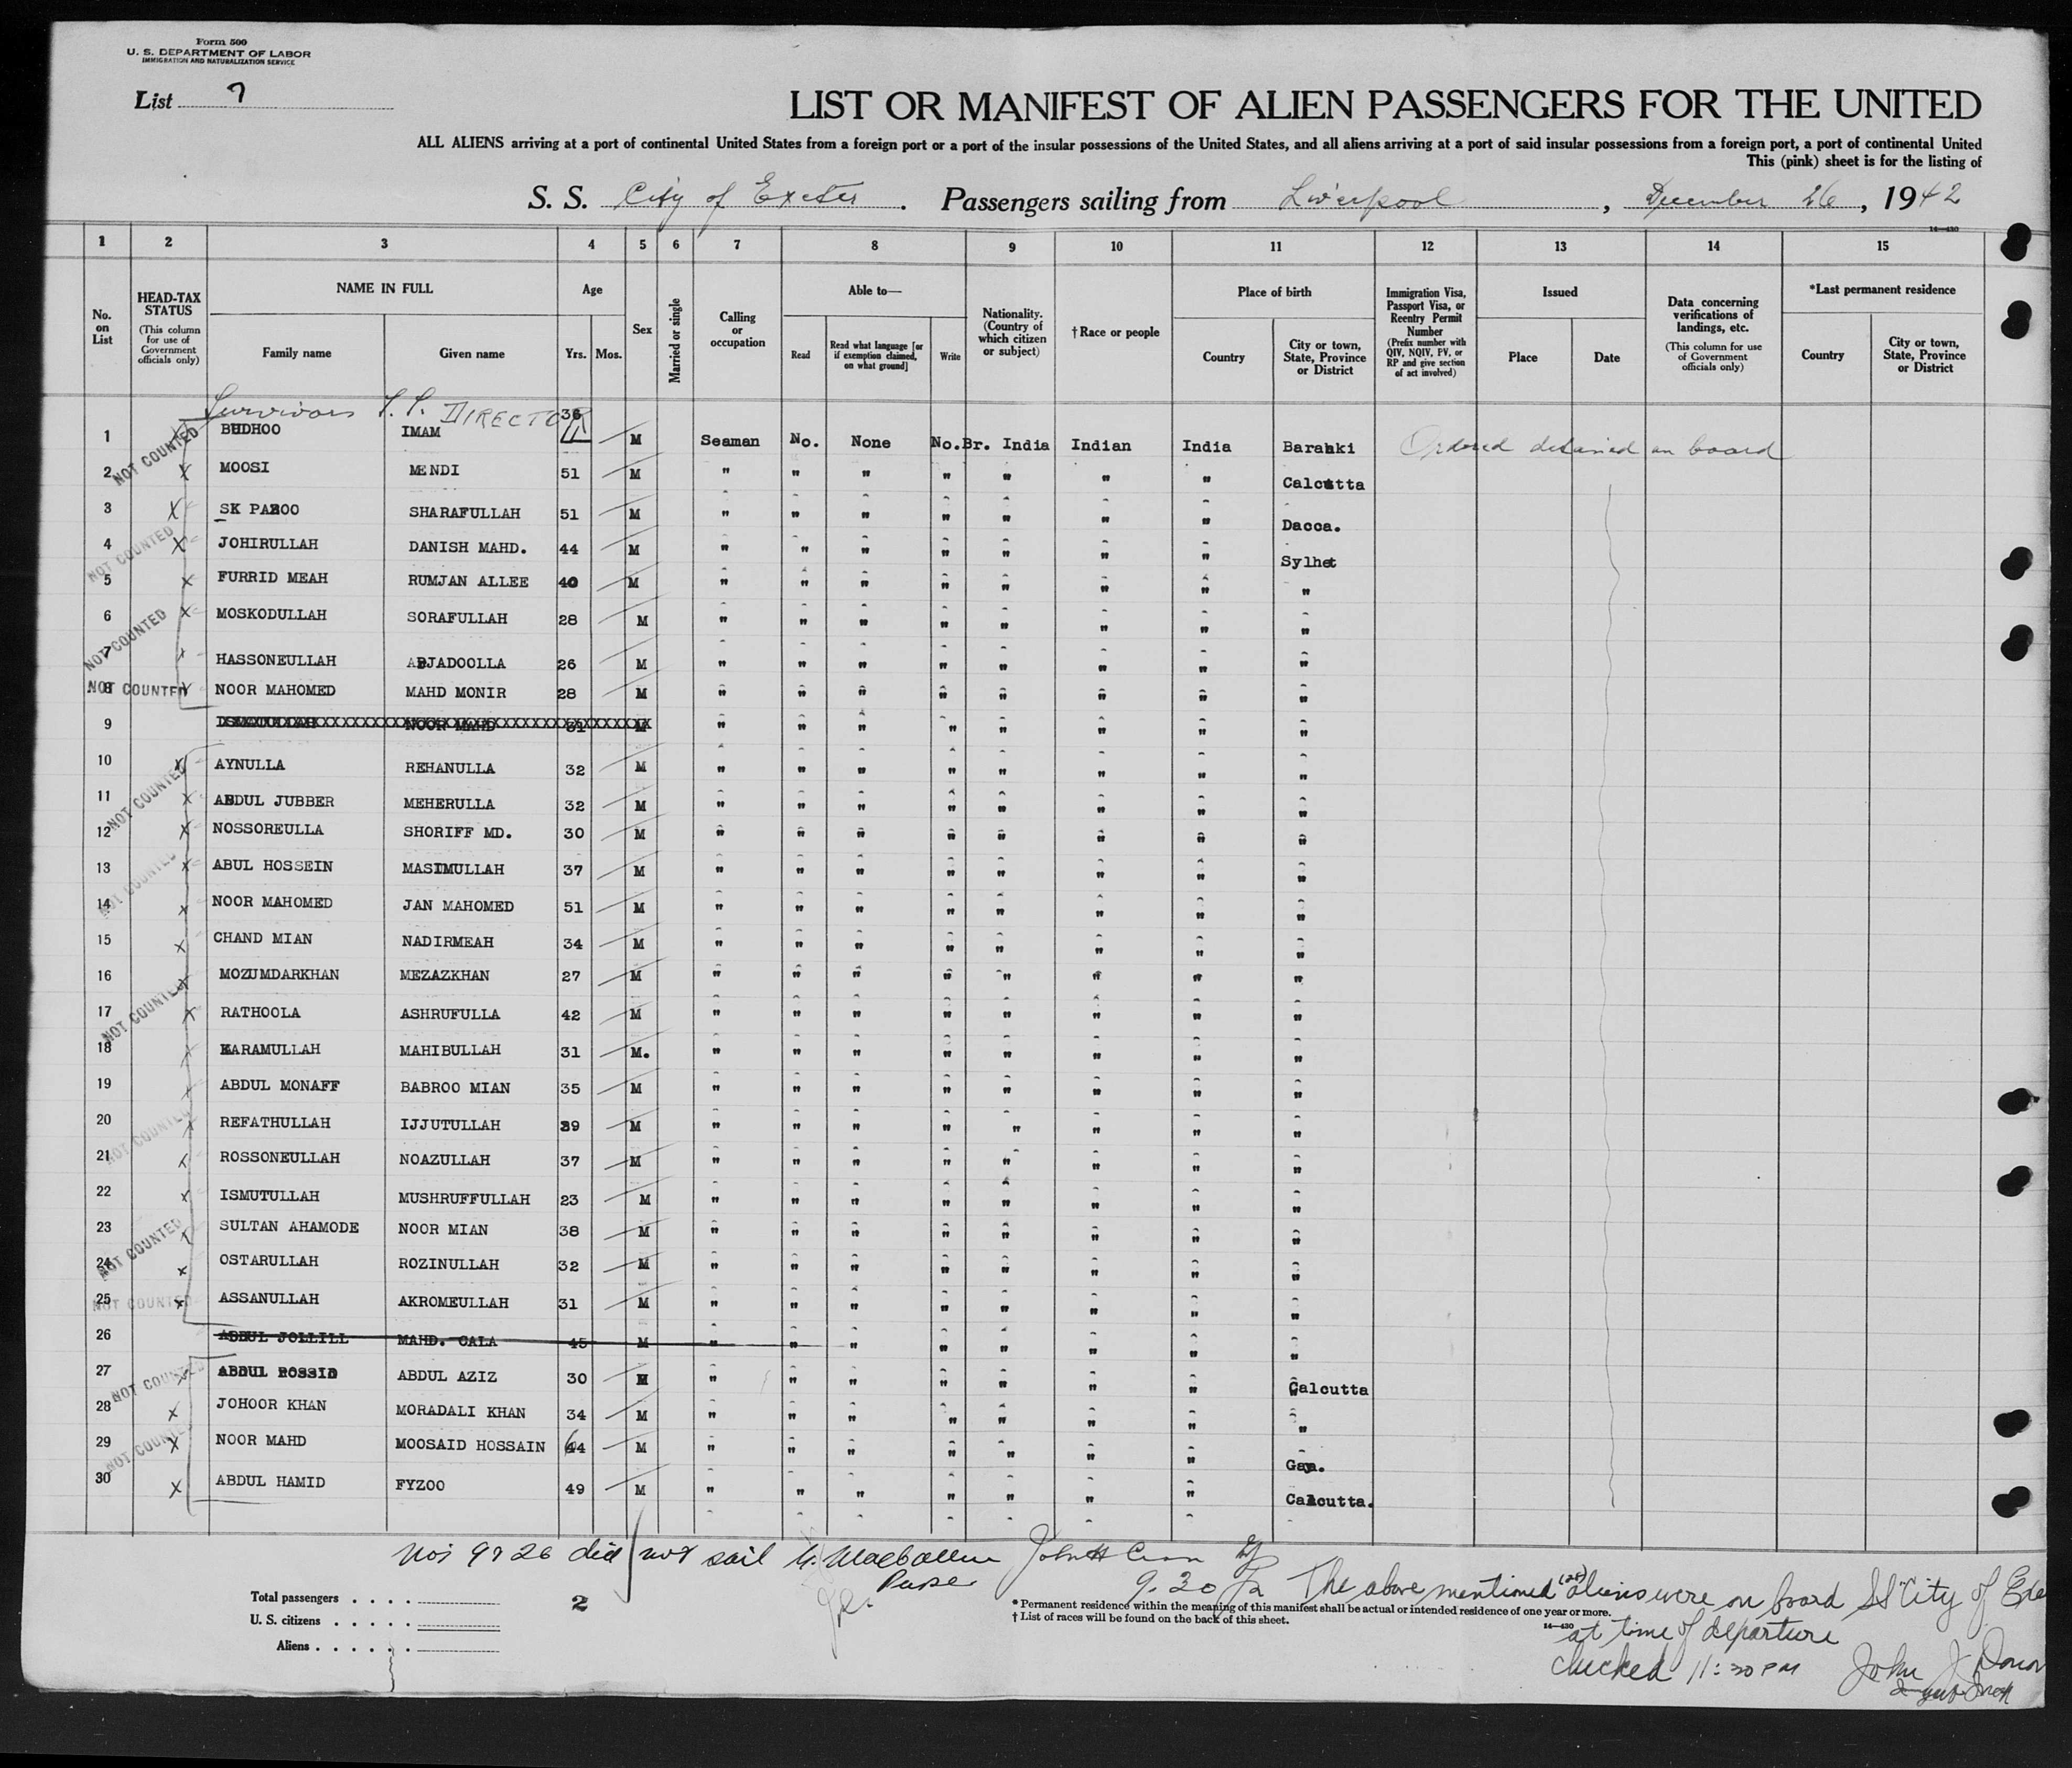 Form 500
U. S. DEPARTMENT OF LABOR
IMMIGRATION AND NATURALIZATION SERVICE
List 7
LIST OR MANIFEST OF ALIEN PASSENGERS FOR THE UNITED
ALL ALIENS arriving at a port of continental United States from a foreign port or a port of the insular possessions of the United States, and all aliens arriving at a port of said insular possessions from a foreign port, a port of continental United
This (pink) sheet is for the listing of
S. S. City of Exeter. Passengers sailing from Liverpool, December 26, 1942
14—430
1 2 3 4 5 6 7 8 9 10 11 12 13 14 15
No. on List
HEAD-TAX STATUS (This column for use of Government officials only)
NAME IN FULL
Family name Given name
Age
Yrs. Mos.
Sex
Married or single
Calling or occupation
Able to—
Read
Read what language [or if exemption claimed, on what ground]
Write
Nationality. (Country of which citizen or subject)
†Race or people
Place of birth
Country
City or town, State, Province or District
Immigration Visa, Passport Visa, or Reentry Permit Number (Prefix number with QIV, NQIV, PV, or RP and give section of act involved)
Issued
Place Date
Data concerning verifications of landings, etc. (This column for use of Government officials only)
*Last permanent residence
Country
City or town, State, Province or District
Survivors DIRECTOR
1 BUDHOO IMAM 36 M Seaman No. None No. Br. India Indian India Barahki Ordered detained on board
2 MOOSI MENDI 51 M " " " " " " " Calcutta
3 SK PAZOO SHARAFULLAH 51 M " " " " " " " Dacca.
4 JOHIRULLAH DANISH MAHD. 44 M " " " " " " " Sylhet
5 FURRID MEAH RUMJAN ALLEE 40 M " " " " " " " "
6 MOSKODULLAH SORAFULLAH 28 M " " " " " " " "
7 HASSONEULLAH ABJADOOLLA 26 M " " " " " " " "
8 NOOR MAHOMED MAHD MONIR 28 M " " " " " " " "
9 NOOR MAHD 31 M " " " " " " " "
10 AYNULLA REHANULLA 32 M " " " " " " " "
11 ABDUL JUBBER MEHERULLA 32 M " " " " " " " "
12 NOSSOREULLA SHORIFF MD. 30 M " " " " " " " "
13 ABUL HOSSEIN MASIMULLAH 37 M " " " " " " " "
14 NOOR MAHOMED JAN MAHOMED 51 M " " " " " " " "
15 CHAND MIAN NADIRMEAH 34 M " " " " " " " "
16 MOZUMDARKHAN MEZAZKHAN 27 M " " " " " " " "
17 RATHOOLA ASHRUFULLA 42 M " " " " " " " "
18 KARAMULLAH MAHIBULLAH 31 M. " " " " " " " "
19 ABDUL MONAFF BABROO MIAN 35 M " " " " " " " "
20 REFATHULLAH IJJUTULLAH 39 M " " " " " " " "
21 ROSSONEULLAH NOAZULLAH 37 M " " " " " " " "
22 ISMUTULLAH MUSHRUFFULLAH 23 M " " " " " " " "
23 SULTAN AHAMODE NOOR MIAN 38 M " " " " " " " "
24 OSTARULLAH ROZINULLAH 32 M " " " " " " " "
25 ASSANULLAH AKROMEULLAH 31 M " " " " " " " "
26 ABDUL JOLLILL MAHD. CALA 45 M " " " " " " " "
27 ABDUL ROSSID ABDUL AZIZ 30 M " " " " " " " Calcutta
28 JOHOOR KHAN MORADALI KHAN 34 M " " " " " " " "
29 NOOR MAHD MOOSAID HOSSAIN 44 M " " " " " " " Gaya.
30 ABDUL HAMID FYZOO 49 M " " " " " " " Calcutta.
NOT COUNTED
NOT COUNTED
NOT COUNTED
NOT COUNTED
NOT COUNTED
NOT COUNTED
NOT COUNTED
NOT COUNTED
NOT COUNTED
NOT COUNTED
NOT COUNTED
NOT COUNTED
Nos 9 & 26 did not sail
Purser
Total passengers
U. S. citizens
Aliens
2
* Permanent residence within the meaning of this manifest shall be actual or intended residence of one year or more.
† List of races will be found on the back of this sheet.
14—430
The above mentioned (28) aliens were on board SS City of Exe
at time of departure
checked 11:30 PM
John J. Donov